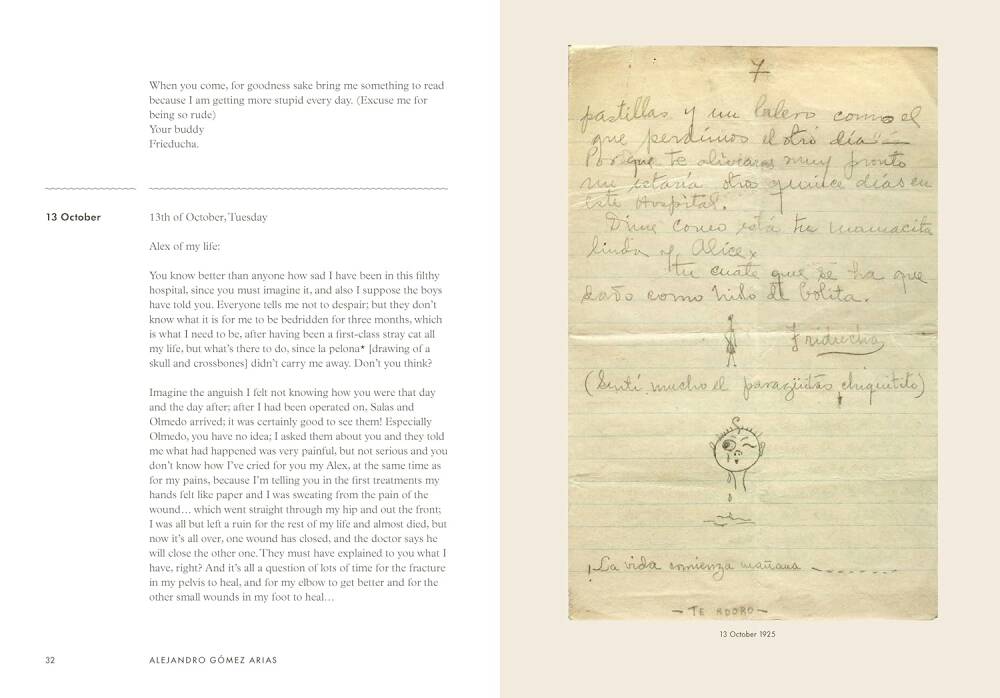 When you come, for goodness sake bring me something to read
because I am getting more stupid every day. (Excuse me for
being so rude)
Your buddy
Frieducha.
13 October
13th of October, Tuesday
Alex of my life:
You know better than anyone how sad I have been in this filthy
hospital, since you must imagine it, and also I suppose the boys
have told you. Everyone tells me not to despair; but they don't
know what it is for me to be bedridden for three months, which
is what I need to be, after having been a first-class stray cat all
my life, but what's there to do, since la pelona* [drawing of a
skull and crossbones] didn't carry me away. Don't you think?
Imagine the anguish I felt not knowing how you were that day
and the day after; after I had been operated on, Salas and
Olmedo arrived; it was certainly good to see them! Especially
Olmedo, you have no idea; I asked them about you and they told
me what had happened was very painful, but not serious and you
don't know how I've cried for you my Alex, at the same time as
for my pains, because I'm telling you in the first treatments my
hands felt like paper and I was sweating from the pain of the
wound… which went straight through my hip and out the front;
I was all but left a ruin for the rest of my life and almost died, but
now it's all over, one wound has closed, and the doctor says he
will close the other one. They must have explained to you what I
have, right? And it's all a question of lots of time for the fracture
in my pelvis to heal, and for my elbow to get better and for the
other small wounds in my foot to heal…
32
ALEJANDRO GÓMEZ ARIAS
7
pastillas y un balero como el
que perdimos el otro día
Porque te aliviaras muy pronto
me estaría otro quince días en
este Hospital.
Dime como está tu mamacita
linda y Alice
tu cuate que se ha que
dado como hilo de bolita.
Friducha
(Sentí mucho el paragüitas chiquitito)
¡La vida comienza mañana
— TE ADORO —
13 October 1925